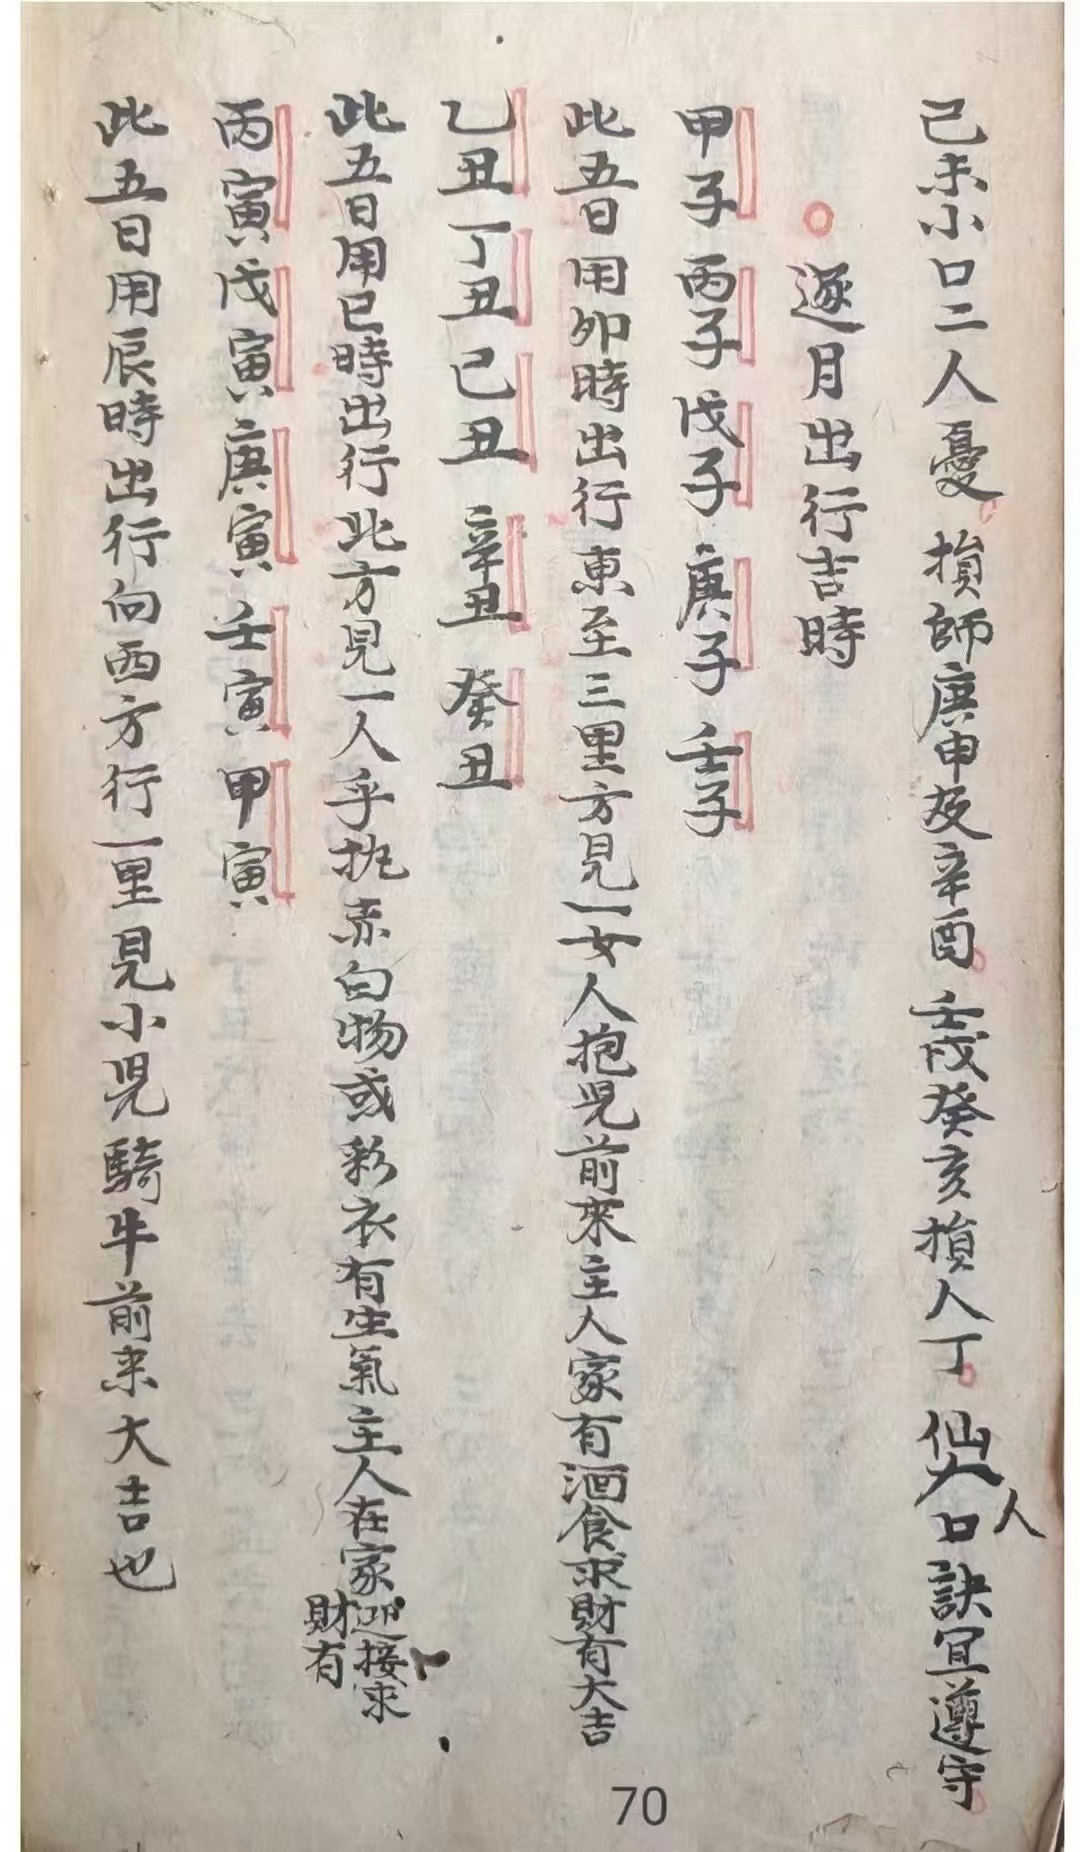 己未小口二人憂損師庚申及辛酉壬戌癸亥損人丁仙人口訣宜遵守
逐月出行吉時
甲子丙子戊子庚子壬子
此五日用卯時出行東至三里方見一女人抱児前來主人家有洒食求財有大吉
乙丑丁丑己丑辛丑癸丑
此五日用巳時出行此方見一人手执赤白物或彩衣有生氣主人在家迎接求財有
丙寅戊寅庚寅壬寅甲寅
此五日用辰時出行向西方行一里見小児騎牛前来大吉也
70